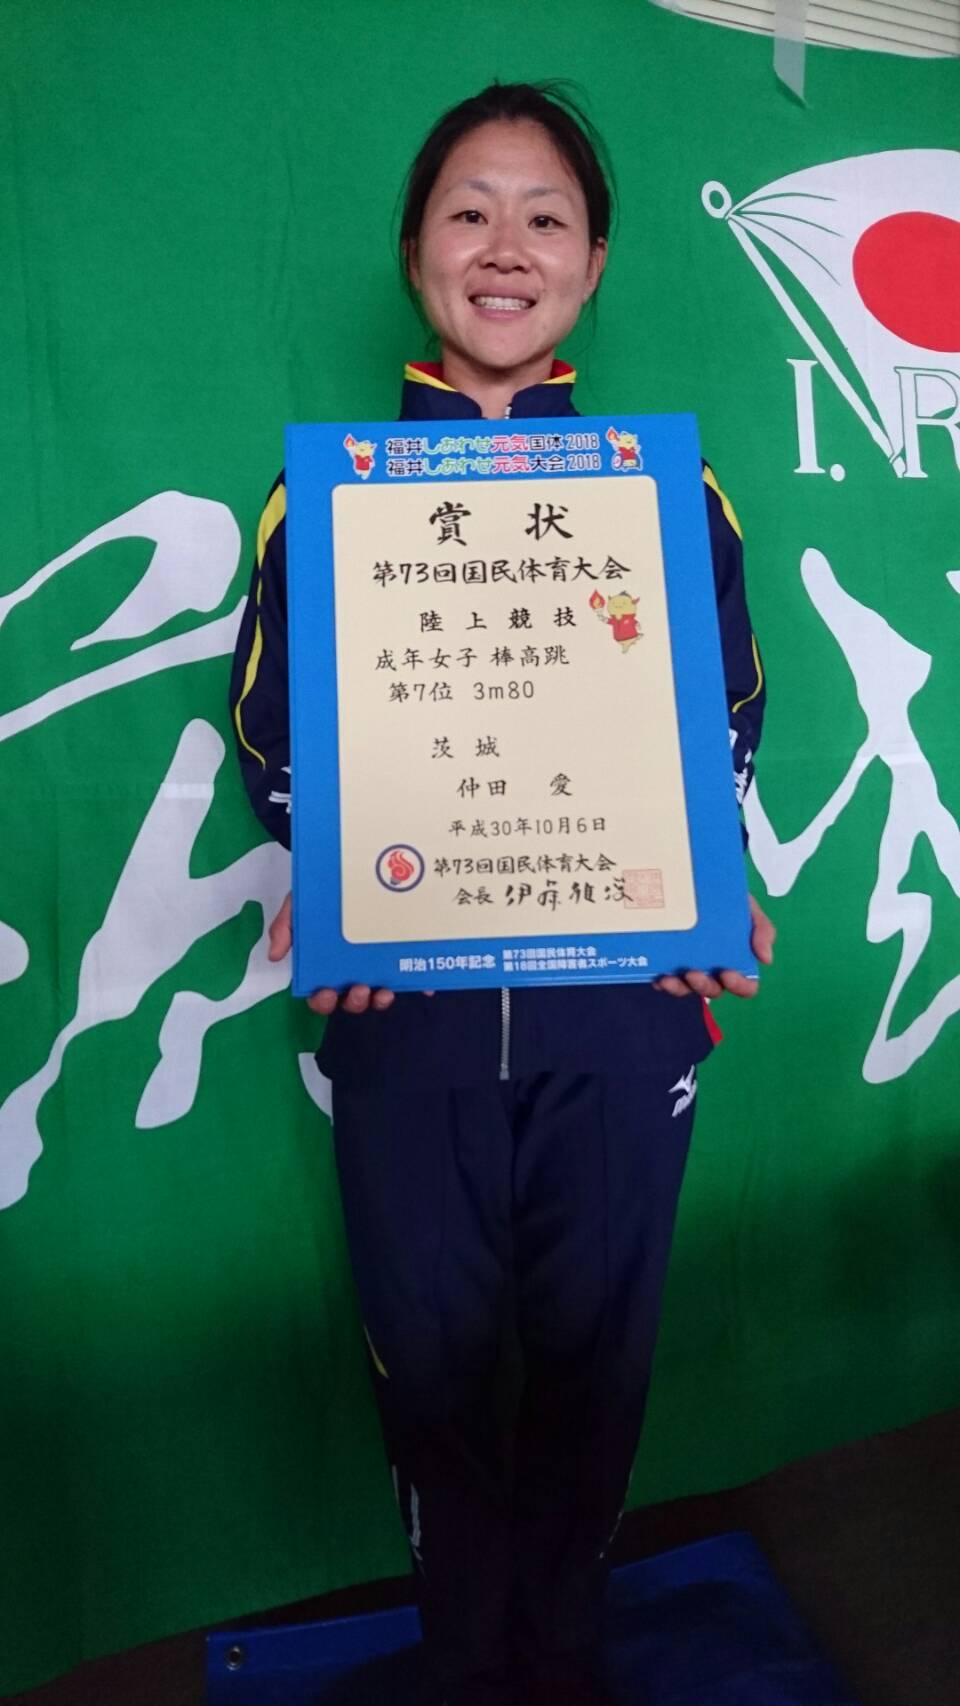 福井しあわせ元気国体2018
福井しあわせ元気大会2018
賞 状
第73回国民体育大会
陸上競技
成年女子 棒高跳
第7位 3m80
茨城
仲田 愛
平成30年10月6日
第73回国民体育大会
会長 伊藤雅俊
明治150年記念 第73回国民体育大会
第18回全国障害者スポーツ大会
I.R
mizuno